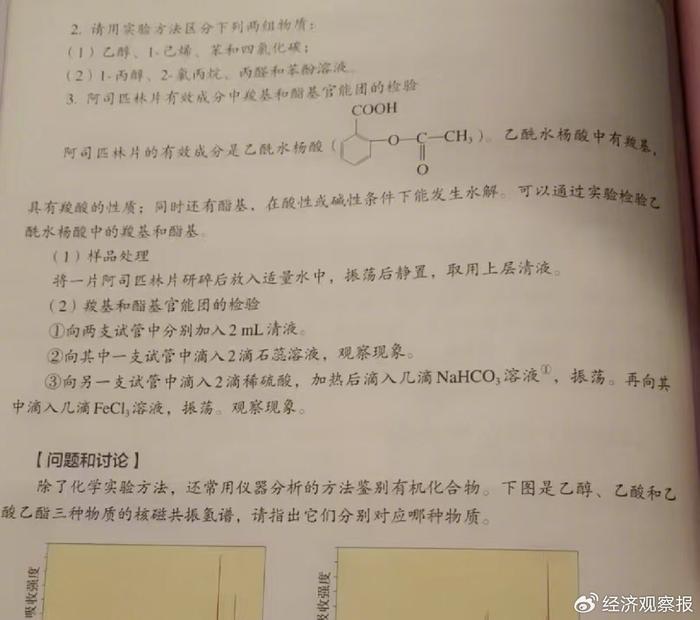 2. 请用实验方法区分下列两组物质：
（1）乙醇、1-己烯、苯和四氯化碳；
（2）1-丙醇、2-氯丙烷、丙醛和苯酚溶液。
3. 阿司匹林片有效成分中羧基和酯基官能团的检验
COOH
阿司匹林片的有效成分是乙酰水杨酸（ O—C—CH₃）。乙酰水杨酸中有羧基，
O
具有羧酸的性质；同时还有酯基，在酸性或碱性条件下能发生水解。可以通过实验检验乙
酰水杨酸中的羧基和酯基。
（1）样品处理
将一片阿司匹林片研碎后放入适量水中，振荡后静置，取用上层清液。
（2）羧基和酯基官能团的检验
①向两支试管中分别加入2 mL清液。
②向其中一支试管中滴入2滴石蕊溶液，观察现象。
③向另一支试管中滴入2滴稀硫酸，加热后滴入几滴NaHCO₃溶液①，振荡。再向其
中滴入几滴FeCl₃溶液，振荡。观察现象。
【问题和讨论】
除了化学实验方法，还常用仪器分析的方法鉴别有机化合物。下图是乙醇、乙酸和乙
酸乙酯三种物质的核磁共振氢谱，请指出它们分别对应哪种物质。
吸收强度
吸收强度
经济观察报